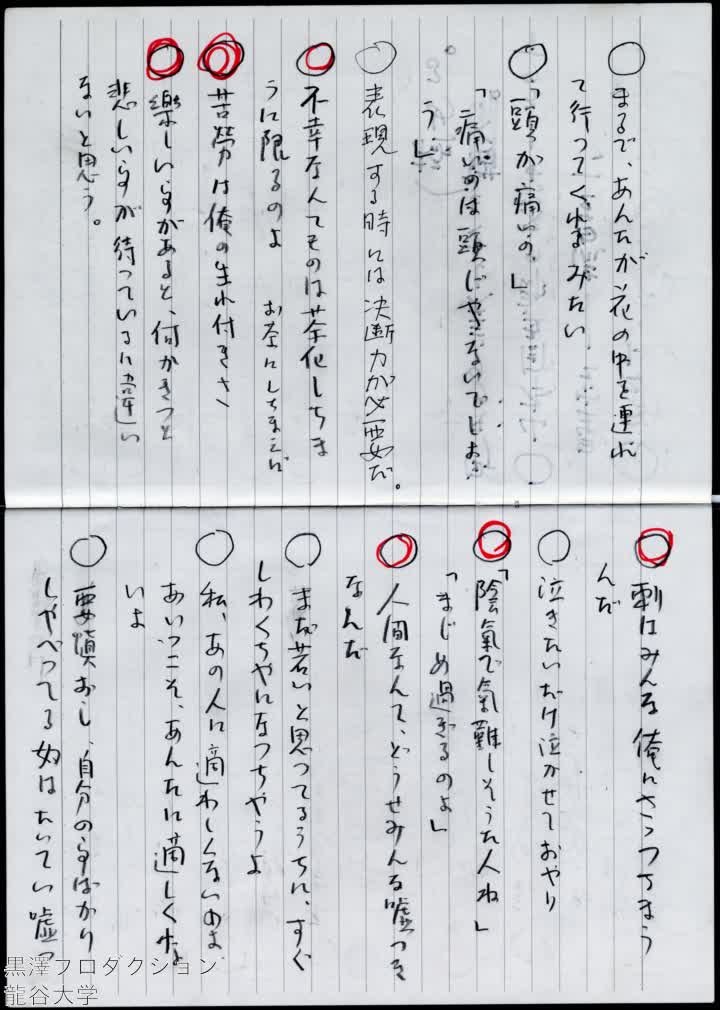 ○まるで、あんたが花の中を連れ
て行ってくれるみたい
○「頭が痛いの。」
「痛いのは頭じゃないでしょ
う」
○表現する時には決断力が必要だ。
○不幸なんてものは茶化しちま
うに限るのよ お茶にしちまえば
○苦勞は俺の生れ付きさ
○楽しい事があると、何かきっと
悲しい事が待っているに違い
ないと思う。
○刺はみんな俺にささっちまう
んだ
○泣きたいだけ泣かせておやり
○「陰氣で氣難しそうな人ね」
「まじめ過ぎるのよ」
○人間なんて、どうせみんな嘘つき
なんだ
○まだ若いと思ってるうちに、すぐ
しわくちゃになっちゃうよ
○私、あの人に適わしくないのよ
あいつこそ、あんたに適しくな
いよ
○要慎おし、自分の事ばかり
しゃべってる奴はたいてい嘘つ
黒澤プロダクション
龍谷大学